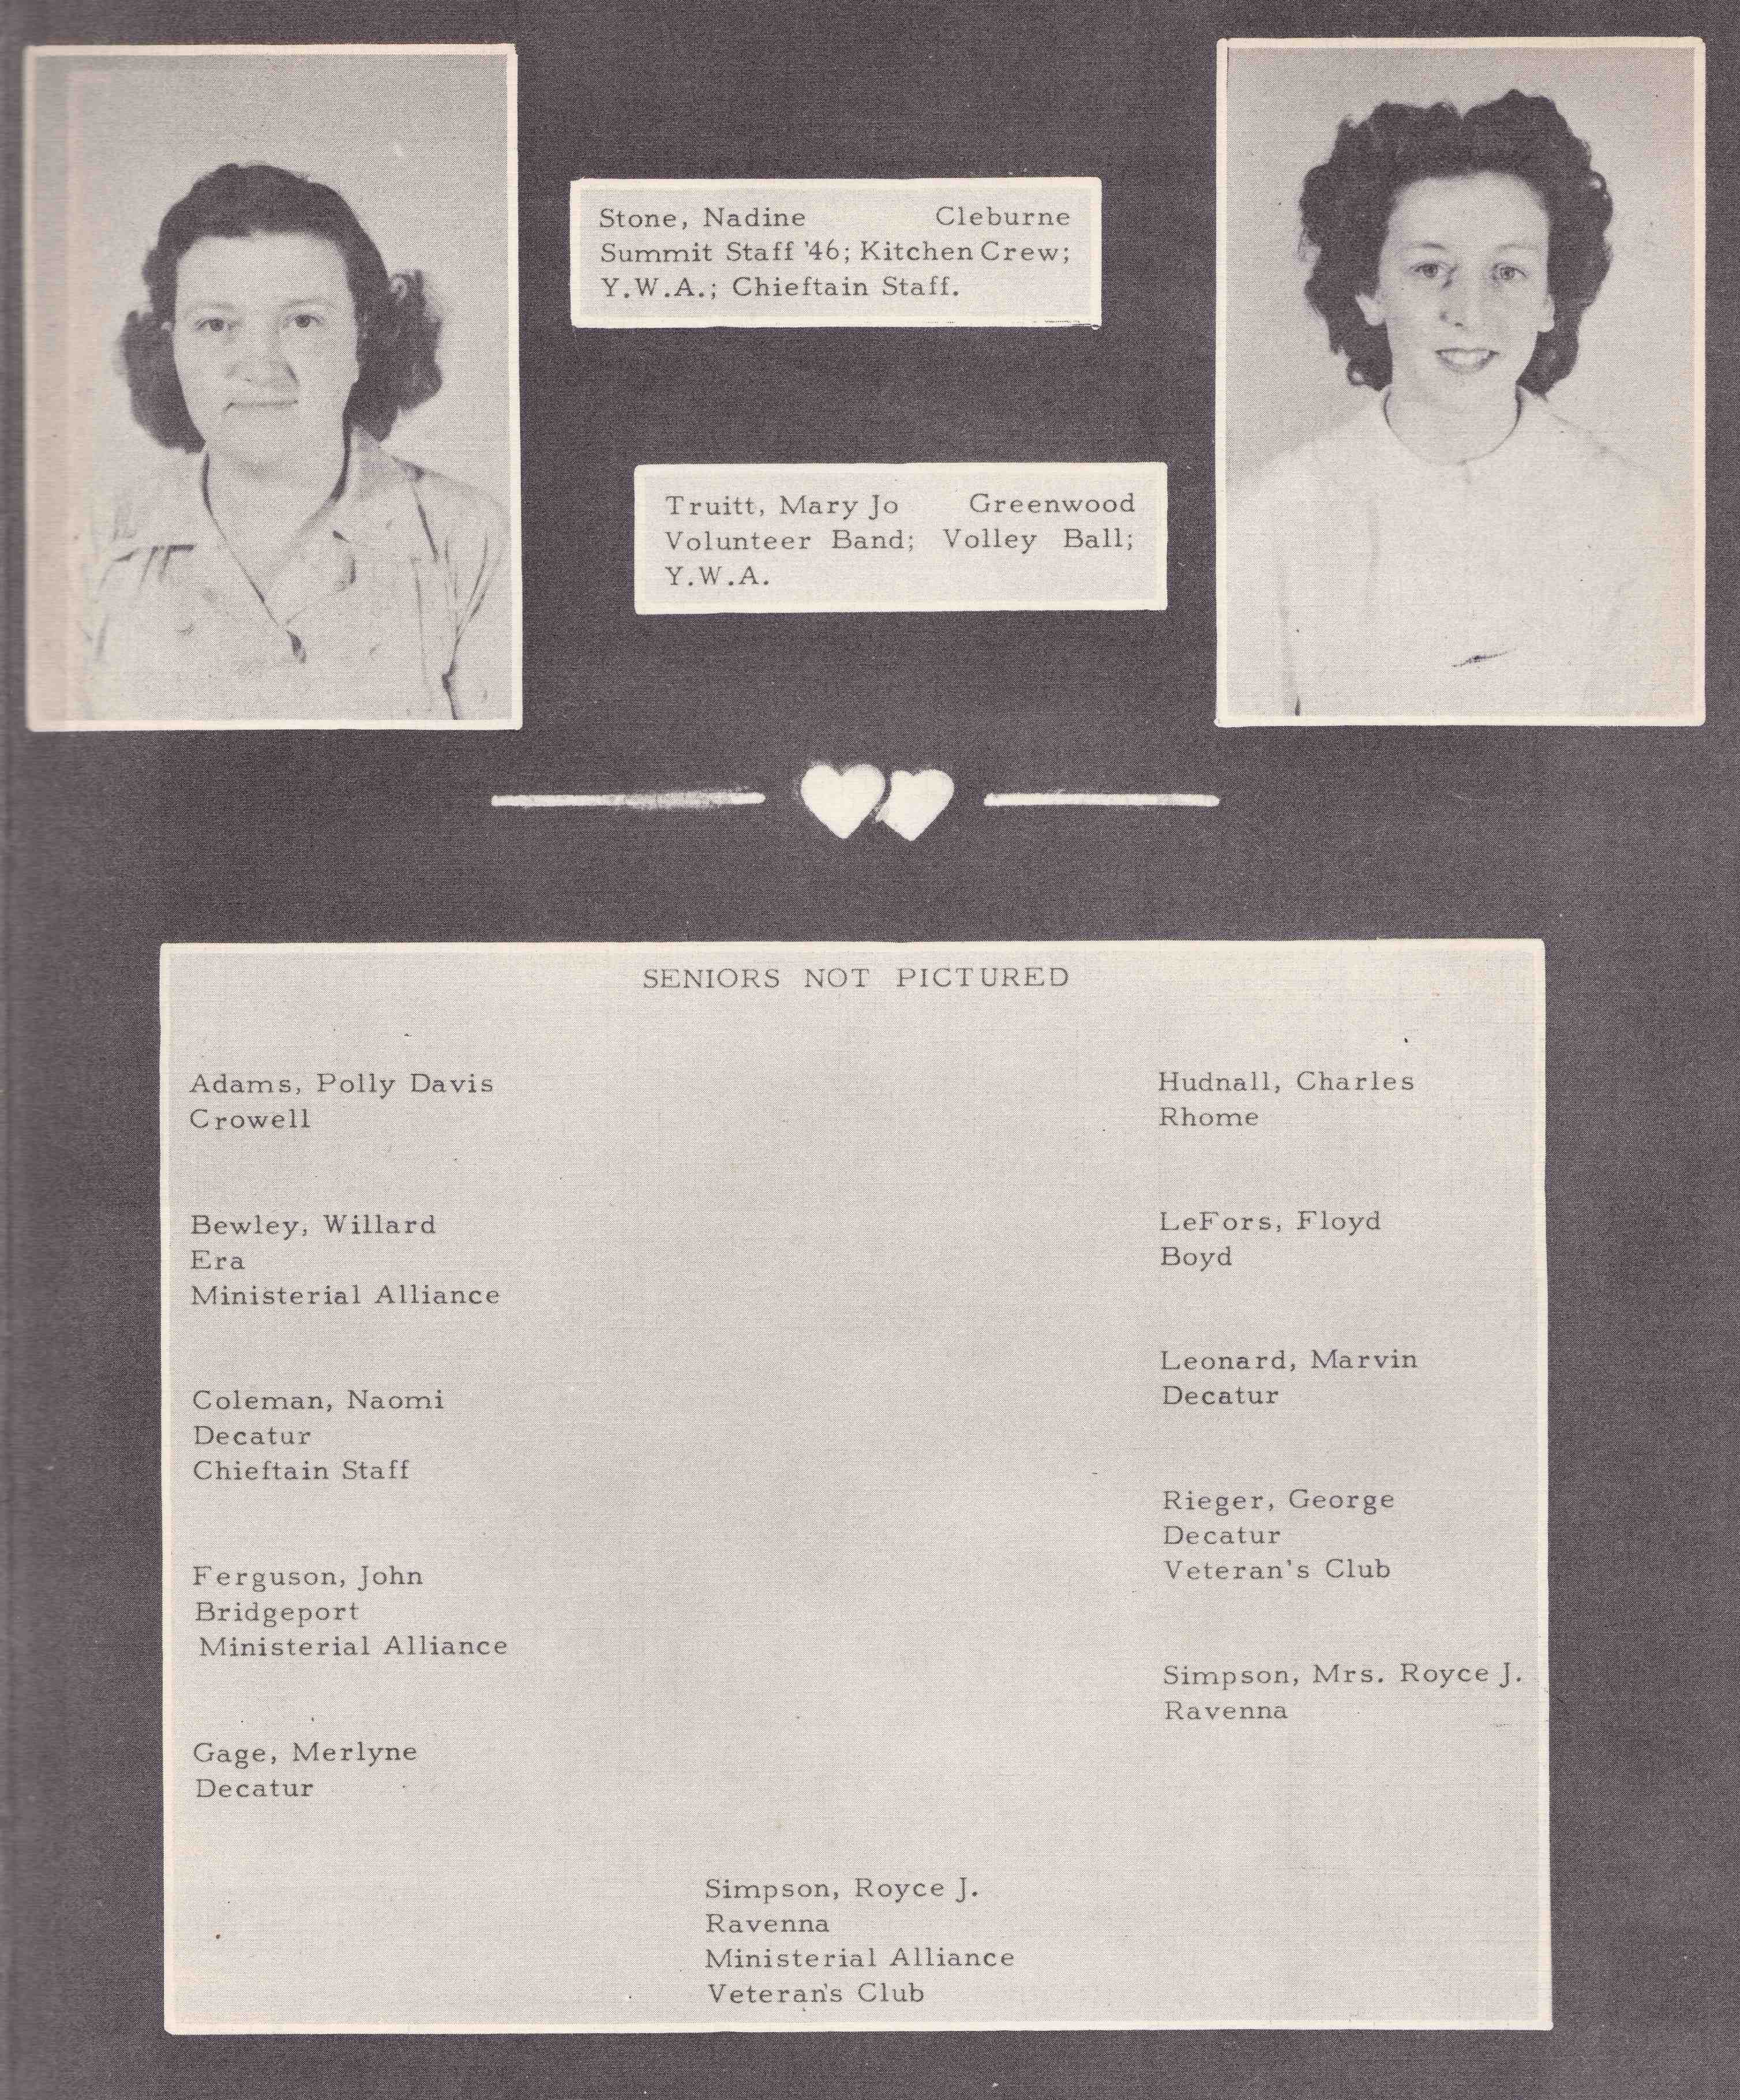 Stone, Nadine Cleburne
Summit Staff '46; Kitchen Crew;
Y.W.A.; Chieftain Staff.
Truitt, Mary Jo Greenwood
Volunteer Band; Volley Ball;
Y.W.A.
SENIORS NOT PICTURED
Adams, Polly Davis
Crowell
Bewley, Willard
Era
Ministerial Alliance
Coleman, Naomi
Decatur
Chieftain Staff
Ferguson, John
Bridgeport
Ministerial Alliance
Gage, Merlyne
Decatur
Hudnall, Charles
Rhome
LeFors, Floyd
Boyd
Leonard, Marvin
Decatur
Rieger, George
Decatur
Veteran's Club
Simpson, Mrs. Royce J.
Ravenna
Simpson, Royce J.
Ravenna
Ministerial Alliance
Veteran's Club